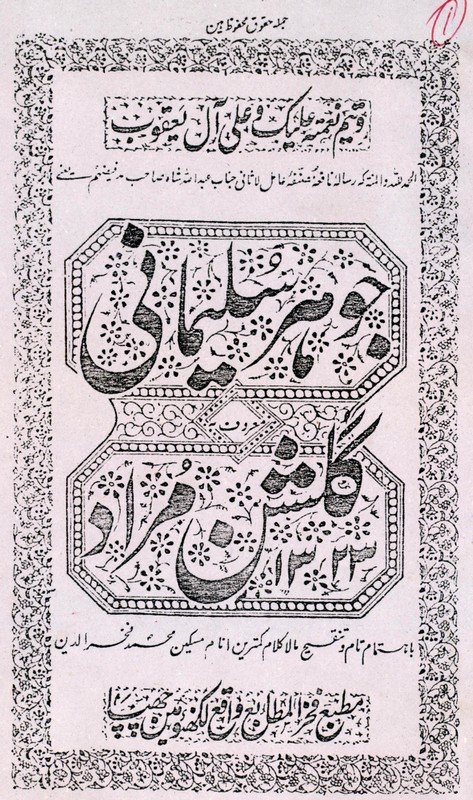 جملہ حقوق محفوظ ہین
ا
ویتم نعمتہ علیک وعلی آل یعقوب
الحمد للہ والمنہ کہ رسالہ نافعہ مصنفہ عامل لاثانی جناب عبداللہ شاہ صاحب مد فیضہم یعنے
جوہر سلیمانی
معروف بہ
گلشن مراد
۱۳۲۳
باہتمام تام و تنقیح مالاکلام کمترین انام مسکین محمد فخر الدین
مطبع فخر المطابع واقع لکھنؤ مین چھپا